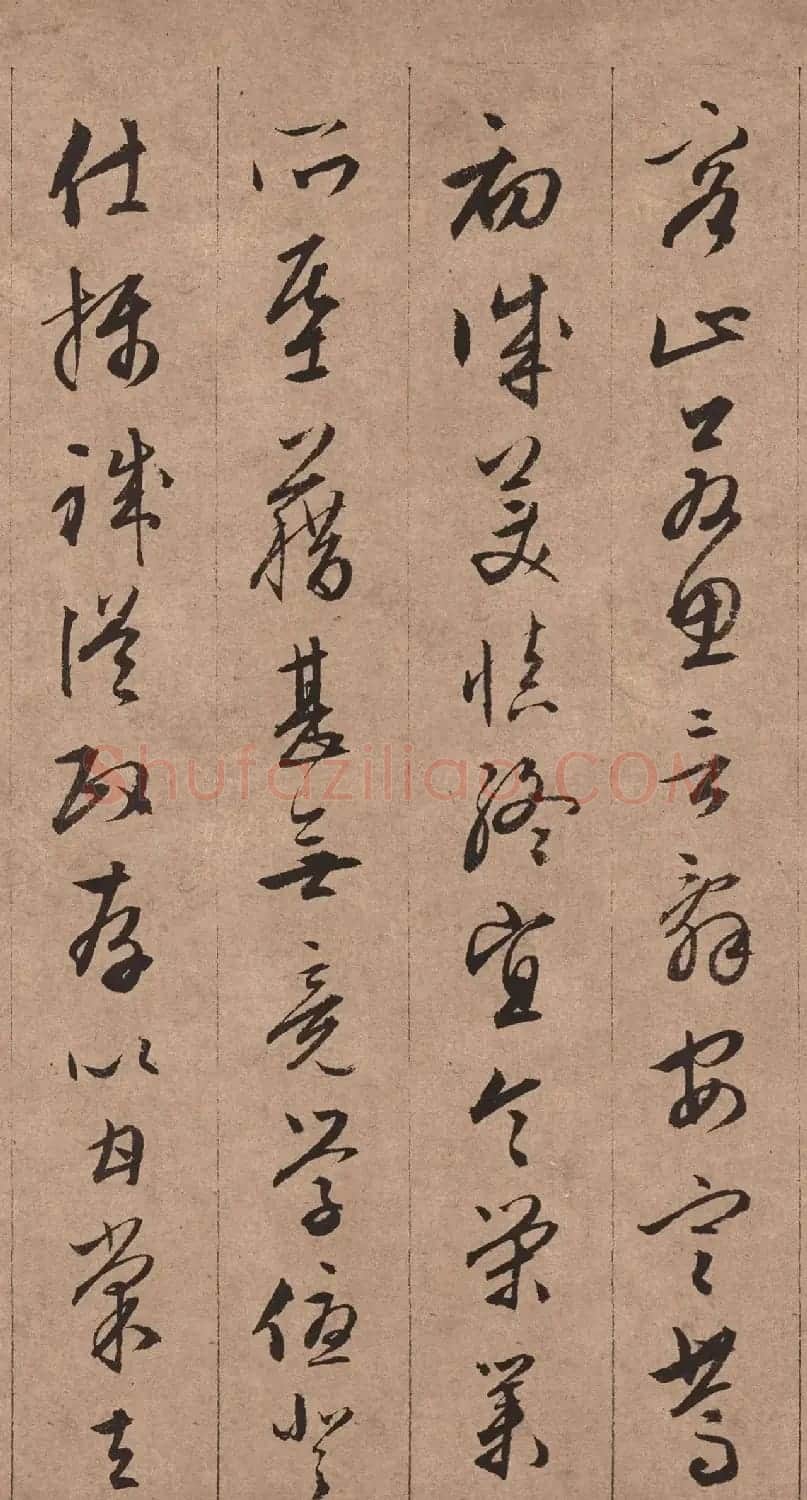 容止若思言辭安定篤
初誠美慎終宜令榮業
所基藉甚無竟學優登
仕攝職從政存以甘棠去
Shufaziliao.COM